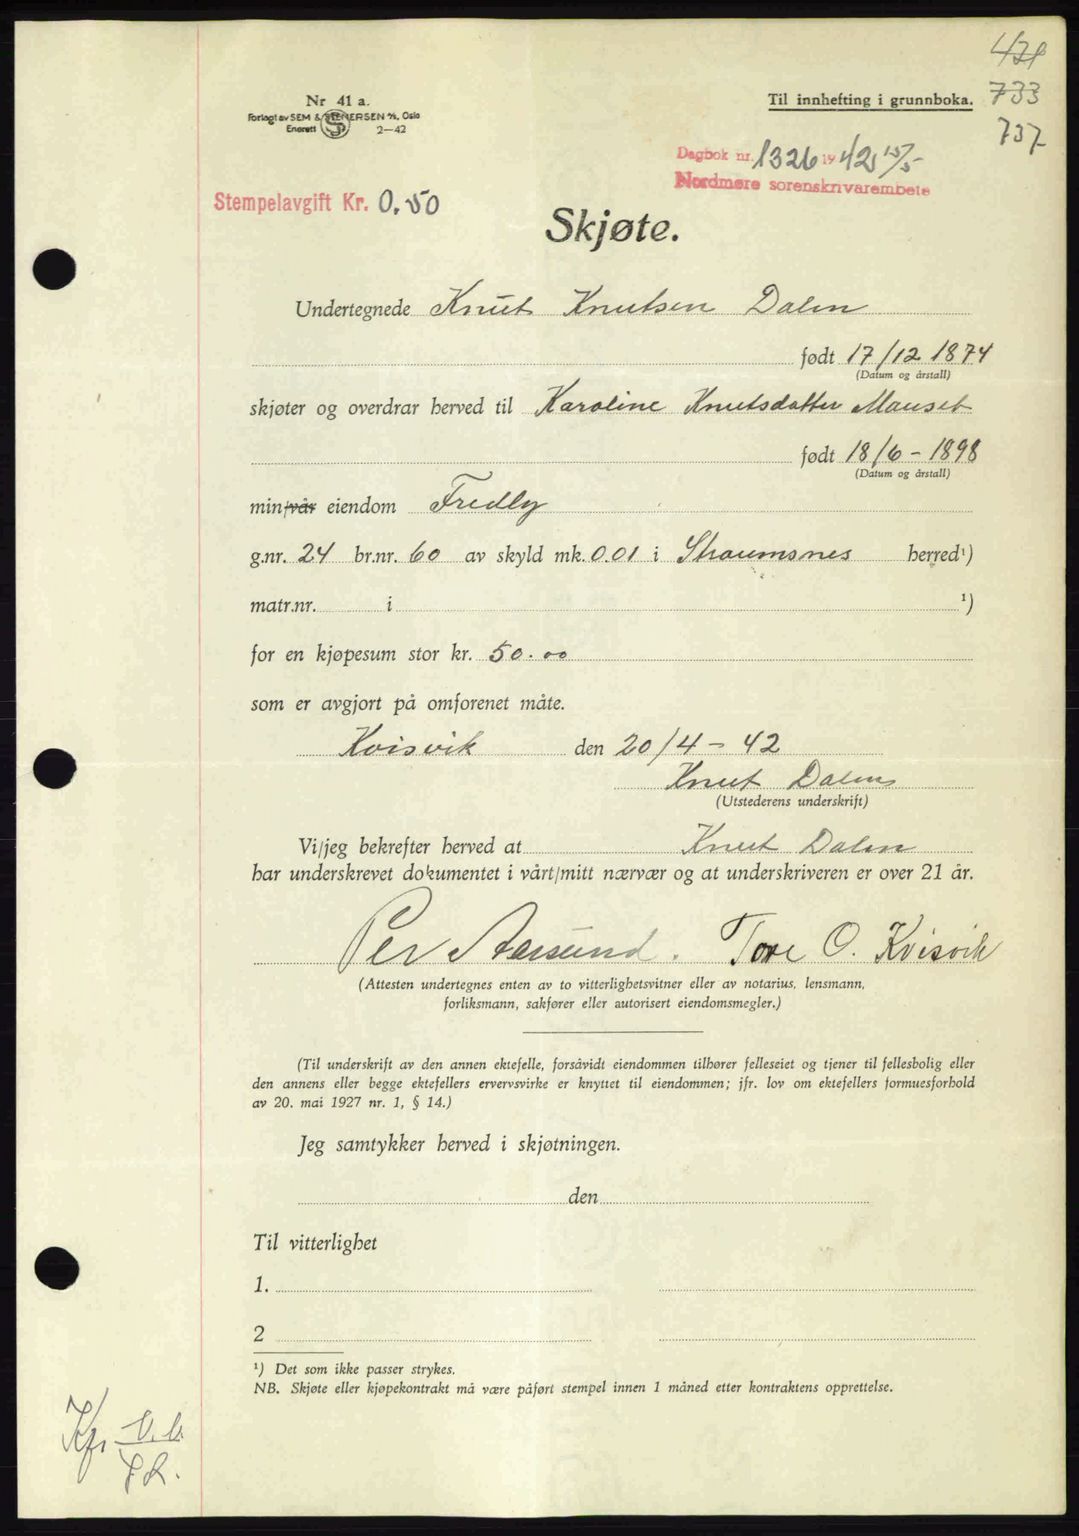 471
Nr 41 a.
Til innhefting i grunnboka. 733
Forlagt av SEM & STENERSEN A/S, Oslo
Enerett 2—42
737
Dagbok nr. 1326 1942 15/5
Nordmøre sorenskrivarembete
Stempelavgift Kr. 0,50
Skjøte.
Undertegnede Knut Knutsen Dalen
født 17/12 1874
(Datum og årstall)
skjøter og overdrar herved til Karoline Knutsdatter Mauset
født 18/6 - 1898
(Datum og årstall)
min/vår eiendom Fredly
g.nr. 24 br.nr. 60 av skyld mk. 0.01 i Straumsnes herred¹)
matr.nr. i ¹)
for en kjøpesum stor kr. 50.00
som er avgjort på omforenet måte.
Kvisvik den 20/4 - 42
Knut Dalen
(Utstederens underskrift)
Vi/jeg bekrefter herved at Knut Dalen
har underskrevet dokumentet i vårt/mitt nærvær og at underskriveren er over 21 år.
Per Aarsund. Tore O. Kvisvik
(Attesten undertegnes enten av to vitterlighetsvitner eller av notarius, lensmann,
forliksmann, sakfører eller autorisert eiendomsmegler.)
(Til underskrift av den annen ektefelle, forsåvidt eiendommen tilhører felleseiet og tjener til fellesbolig eller
den annens eller begge ektefellers ervervsvirke er knyttet til eiendommen; jfr. lov om ektefellers formuesforhold
av 20. mai 1927 nr. 1, § 14.)
Jeg samtykker herved i skjøtningen.
den
Til vitterlighet
1.
2
¹) Det som ikke passer strykes.
NB. Skjøte eller kjøpekontrakt må være påført stempel innen 1 måned etter kontraktens opprettelse.